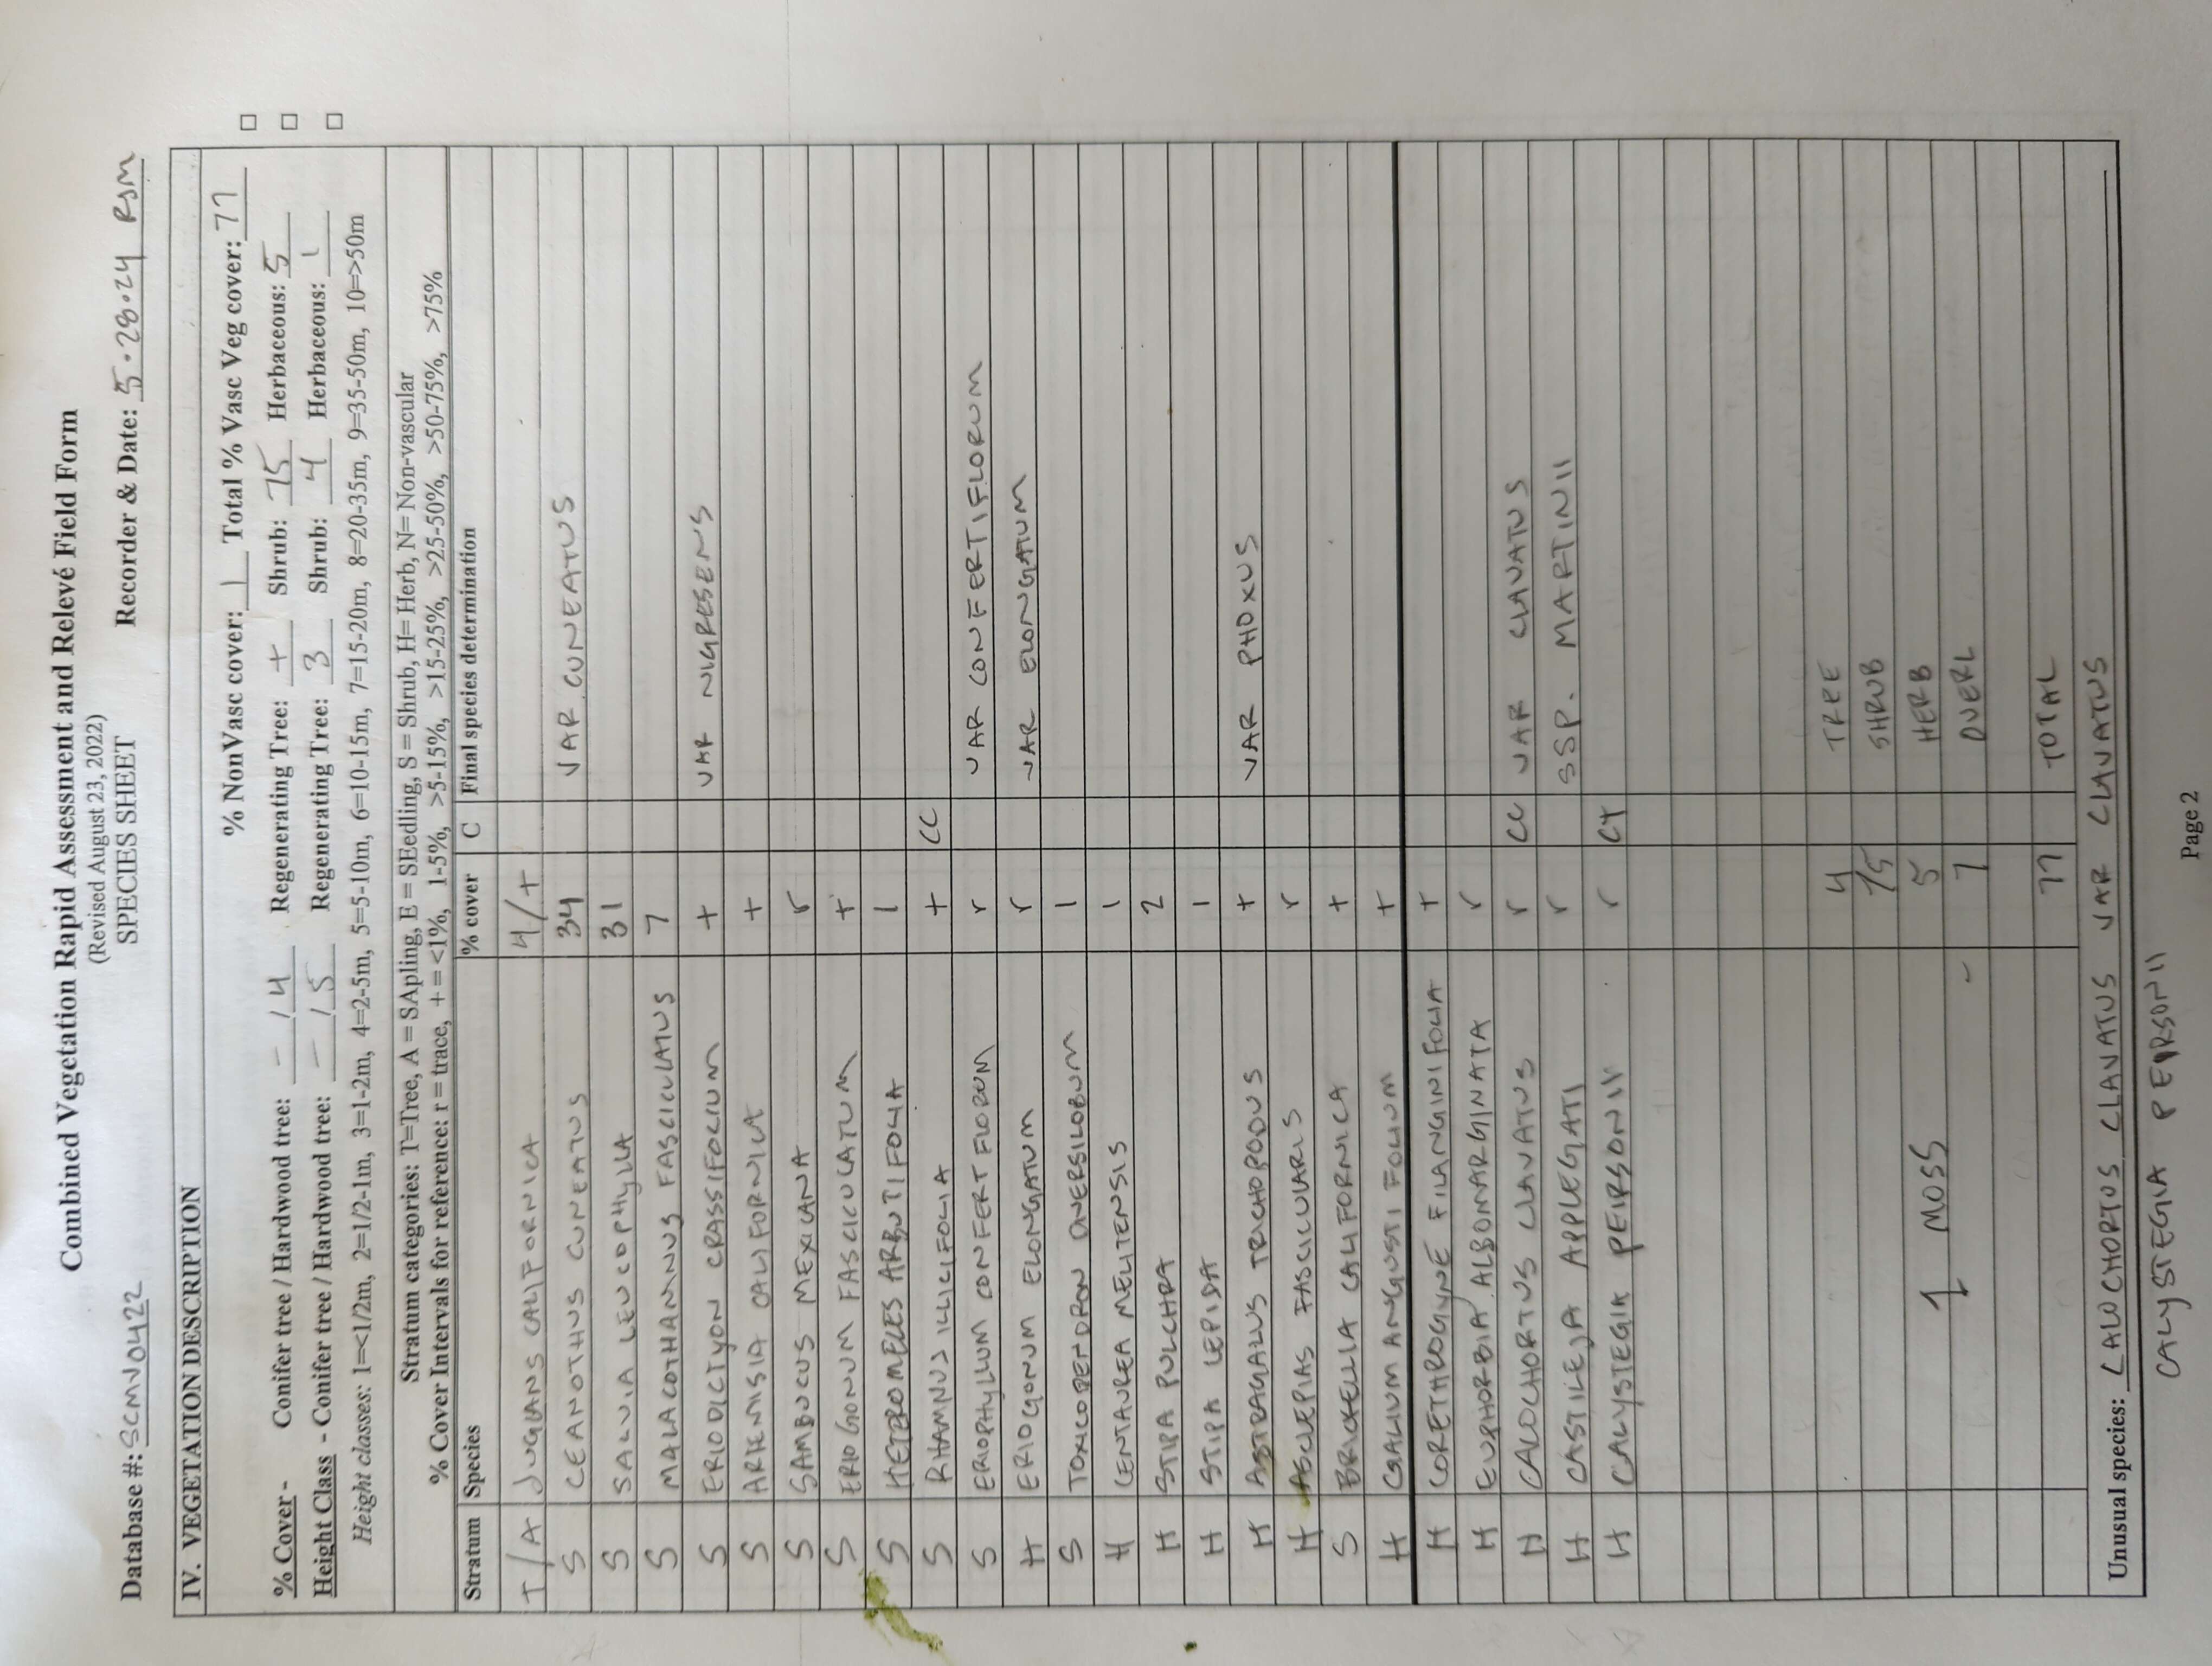 Combined Vegetation Rapid Assessment and Relevé Field Form
(Revised August 23, 2022)
SPECIES SHEET
Database #: SCMN0422 Recorder & Date: 5·28·24 RSM
IV. VEGETATION DESCRIPTION
% NonVasc cover: 1 Total % Vasc Veg cover: 77 □
% Cover - Conifer tree / Hardwood tree: - / 4 Regenerating Tree: + Shrub: 75 Herbaceous: 5 □
Height Class - Conifer tree / Hardwood tree: - / 5 Regenerating Tree: 3 Shrub: 4 Herbaceous: 1 □
Height classes: 1=<1/2m, 2=1/2-1m, 3=1-2m, 4=2-5m, 5=5-10m, 6=10-15m, 7=15-20m, 8=20-35m, 9=35-50m, 10=>50m
Stratum categories: T=Tree, A = SApling, E = SEedling, S = Shrub, H= Herb, N= Non-vascular
% Cover Intervals for reference: r = trace, + = <1%, 1-5%, >5-15%, >15-25%, >25-50%, >50-75%, >75%
Stratum Species % cover C Final species determination
T/A JUGLANS CALIFORNICA 4/+
S CEANOTHUS CUNEATUS 34 VAR. CUNEATUS
S SALVIA LEUCOPHYLLA 31
S MALACOTHAMNUS FASCICULATUS 7
S ERIODICTYON CRASSIFOLIUM + VAR NIGRESENS
S ARTEMISIA CALIFORNICA +
S SAMBUCUS MEXICANA r
S ERIOGONUM FASCICULATUM +
S HETEROMELES ARBUTIFOLIA 1
S RHAMNUS ILLICIFOLIA + CC
S ERIOPHYLLUM CONFERTFLORUM r VAR CONFERTIFLORUM
H ERIOGONUM ELONGATUM r VAR ELONGATUM
S TOXICODENDRON DIVERSILOBUM 1
H CENTAUREA MELITENSIS 1
H STIPA PULCHRA 2
H STIPA LEPIDA 1
H ASTRAGALUS TRICHOPODUS + VAR PHOXUS
H ASCLEPIAS FASCICULARIS r
S BRICKELLIA CALIFORNICA +
H GALIUM ANGUSTIFOLIUM +
H CORETHROGYNE FILANGINIFOLIA +
H EUPHORBIA ALBOMARGINATA r
H CALOCHORTUS CLAVATUS r CC VAR CLAVATUS
H CASTILEJA APPLEGATI r SSP. MARTINII
H CALYSTEGIA PEIRSONII r CT
4 TREE
75 SHRUB
1 MOSS 5 HERB
7 OVERL
77 TOTAL
Unusual species: CALOCHORTUS CLAVATUS VAR CLAVATUS
CALYSTEGIA PEIRSONII
Page 2